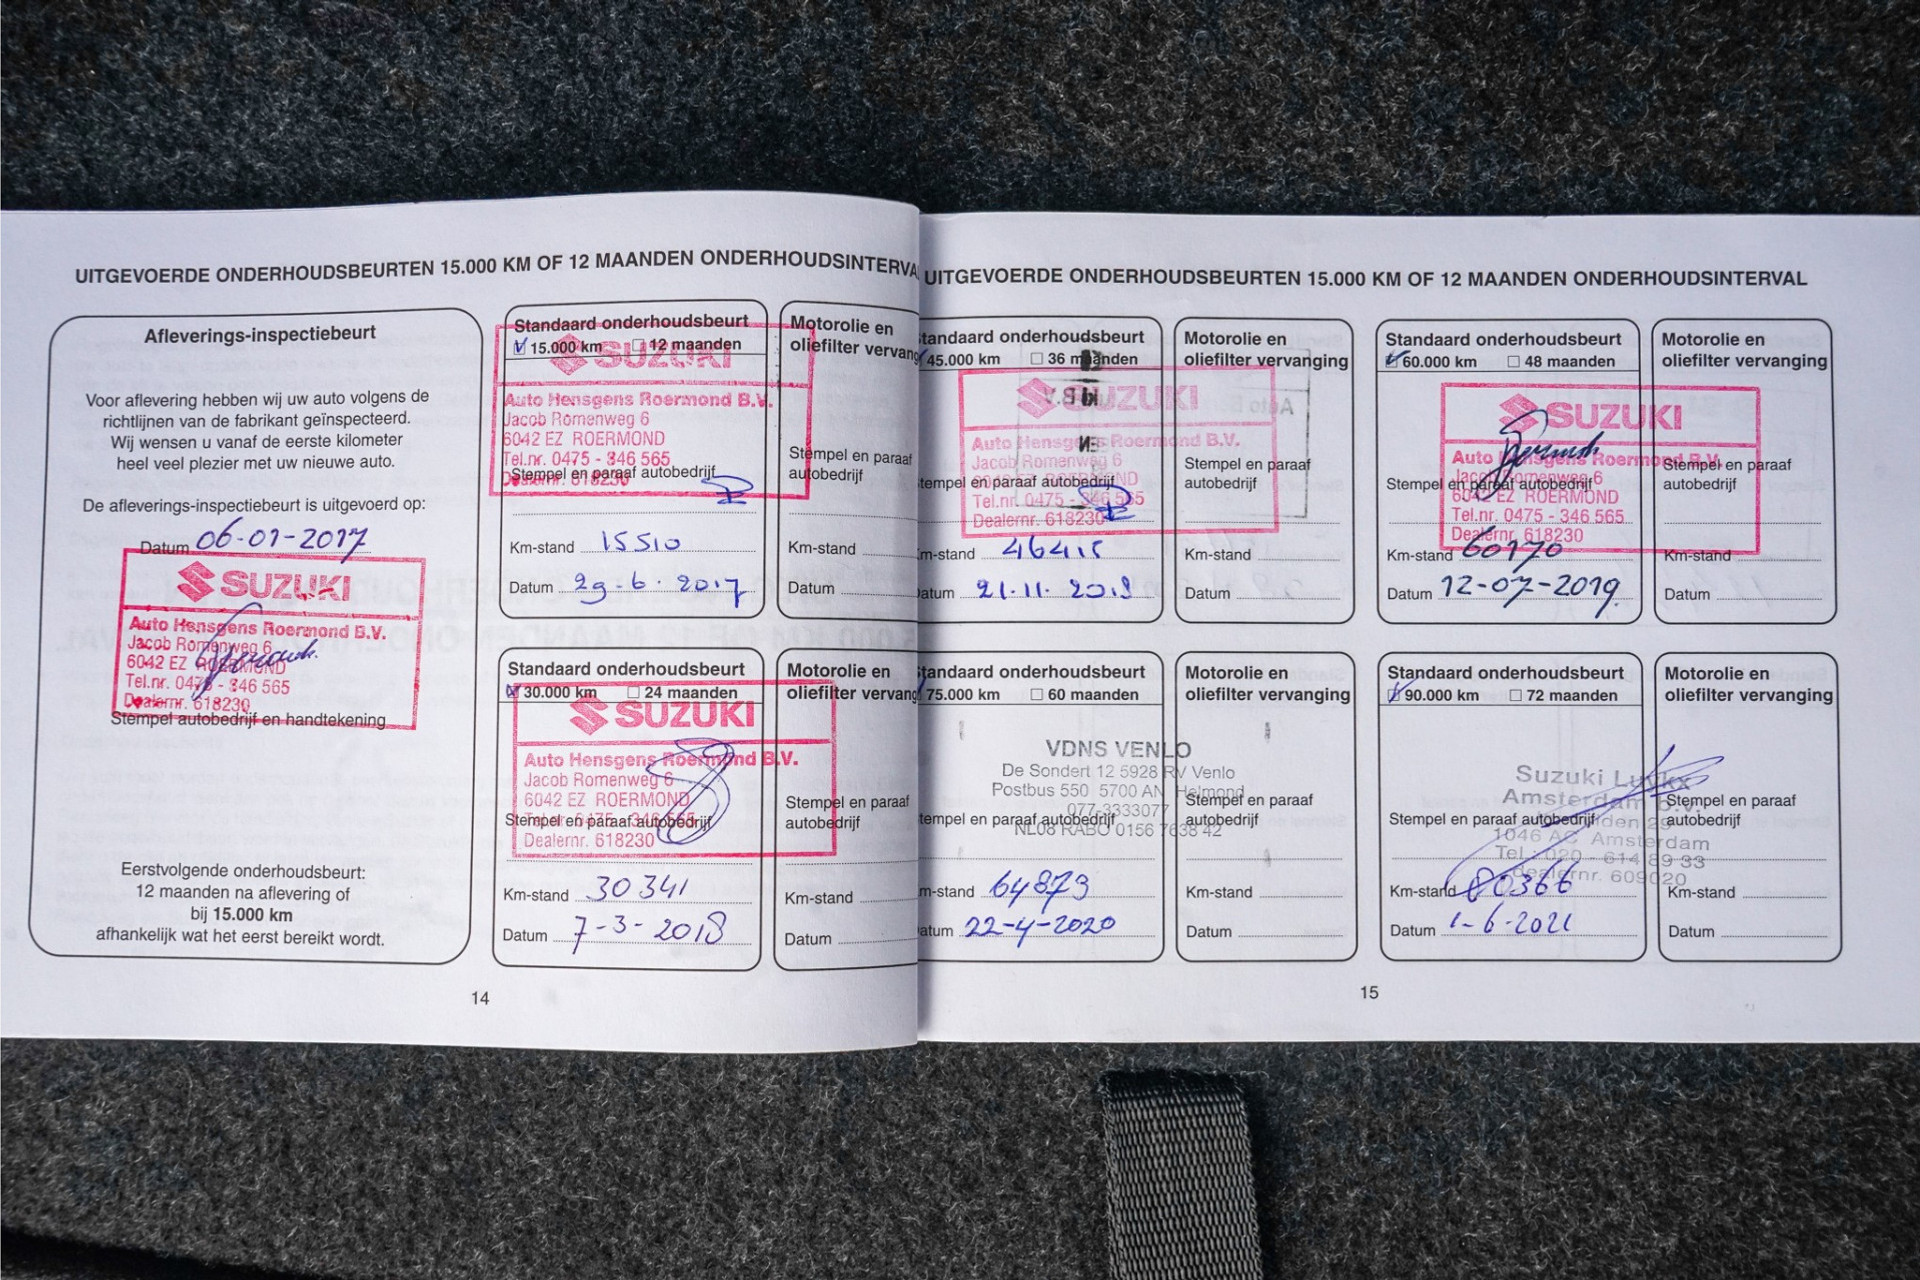 UITGEVOERDE ONDERHOUDSBEURTEN 15.000 KM OF 12 MAANDEN ONDERHOUDSINTERVA
Afleverings-inspectiebeurt
Voor aflevering hebben wij uw auto volgens de
richtlijnen van de fabrikant geïnspecteerd.
Wij wensen u vanaf de eerste kilometer
heel veel plezier met uw nieuwe auto.
De afleverings-inspectiebeurt is uitgevoerd op:
Datum 06-01-2017
SUZUKI
Auto Hensgens Roermond B.V.
Jacob Romenweg 6
6042 EZ ROERMOND
Tel.nr. 0475 - 346 565
Dealernr. 618230
Stempel autobedrijf en handtekening
Eerstvolgende onderhoudsbeurt:
12 maanden na aflevering of
bij 15.000 km
afhankelijk wat het eerst bereikt wordt.
Standaard onderhoudsbeurt
15.000 km 12 maanden
SUZUKI
Auto Hensgens Roermond B.V.
Jacob Romenweg 6
6042 EZ ROERMOND
Tel.nr. 0475 - 346 565
Stempel en paraaf autobedrijf
Dealernr. 618230
Km-stand 15510
Datum 29-6-2017
Motorolie en
oliefilter vervang
Stempel en paraaf
autobedrijf
Km-stand
Datum
Standaard onderhoudsbeurt
30.000 km 24 maanden
SUZUKI
Auto Hensgens Roermond B.V.
Jacob Romenweg 6
6042 EZ ROERMOND
Stempel en paraaf autobedrijf
Tel.nr. 0475 - 346 565
Dealernr. 618230
Km-stand 30341
Datum 7-3-2018
Motorolie en
oliefilter vervang
Stempel en paraaf
autobedrijf
Km-stand
Datum
14
UITGEVOERDE ONDERHOUDSBEURTEN 15.000 KM OF 12 MAANDEN ONDERHOUDSINTERVAL
tandaard onderhoudsbeurt
45.000 km 36 maanden
SUZUKI
Auto Hensgens Roermond B.V.
Jacob Romenweg 6
6042 EZ ROERMOND
tempel en paraaf autobedrijf
Tel.nr. 0475 - 346 565
Dealernr. 618230
m-stand 46415
atum 21.11.2018
Motorolie en
oliefilter vervanging
Stempel en paraaf
autobedrijf
Km-stand
Datum
Standaard onderhoudsbeurt
60.000 km 48 maanden
SUZUKI
Auto Hensgens Roermond B.V.
Jacob Romenweg 6
Stempel en paraaf autobedrijf
6042 EZ ROERMOND
Tel.nr. 0475 - 346 565
Dealernr. 618230
Km-stand 60170
Datum 12-07-2019
Motorolie en
oliefilter vervanging
Stempel en paraaf
autobedrijf
Km-stand
Datum
tandaard onderhoudsbeurt
75.000 km 60 maanden
VDNS VENLO
De Sondert 12 5928 RV Venlo
Postbus 550 5700 AN Helmond
077-3333077
tempel en paraaf autobedrijf
NL08 RABO 0156 7638 42
m-stand 64873
atum 22-4-2020
Motorolie en
oliefilter vervanging
Stempel en paraaf
autobedrijf
Km-stand
Datum
Standaard onderhoudsbeurt
90.000 km 72 maanden
Suzuki Luykx
Amsterdam b.v.
Stempel en paraaf autobedrijf
1046 AC Amsterdam
Tel.: 020 - 614 89 33
dealernr. 609020
Km-stand 80366
Datum 1-6-2021
Motorolie en
oliefilter vervanging
Stempel en paraaf
autobedrijf
Km-stand
Datum
15